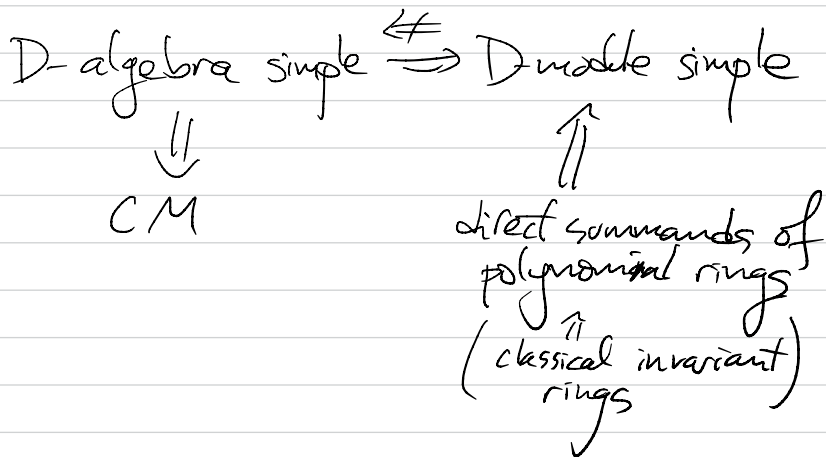 D-algebra simple ⇍ ⇒ D-module simple
⇓ ⇑
CM direct summands of
polynomial rings
⇑
( classical invariant )
rings